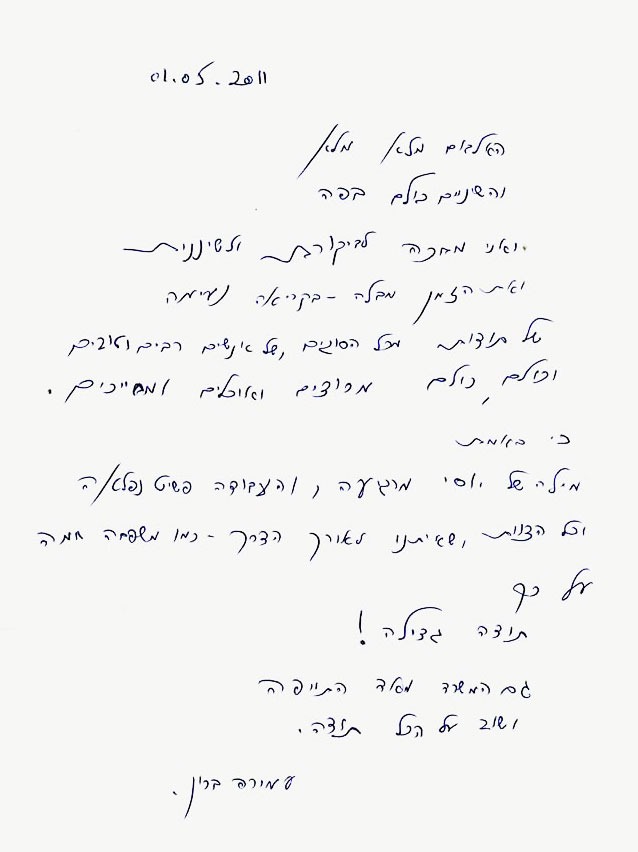 01.05.2011
האלבום מלא מלא
והשיניים כולם בפה
ואני מחכה לביקורת ולשיננית
ואת הזמן מבלה - בקריאה נעימה
של תודות מכל הסוגים, של אנשים רבים וטובים
וכולם, כולם מרוצים ואוכלים ומחייכים.
כי באמת
מילה של יוסי מרגיעה, והעבודה פשוט נפלאה
וכל הצוות, שאיתנו לאורך הדרך - כמו משפחה חמה
על כך
תודה גדולה!
גם המשרד מאוד התייפה
ושוב על הכל תודה.
עמירם ברין.